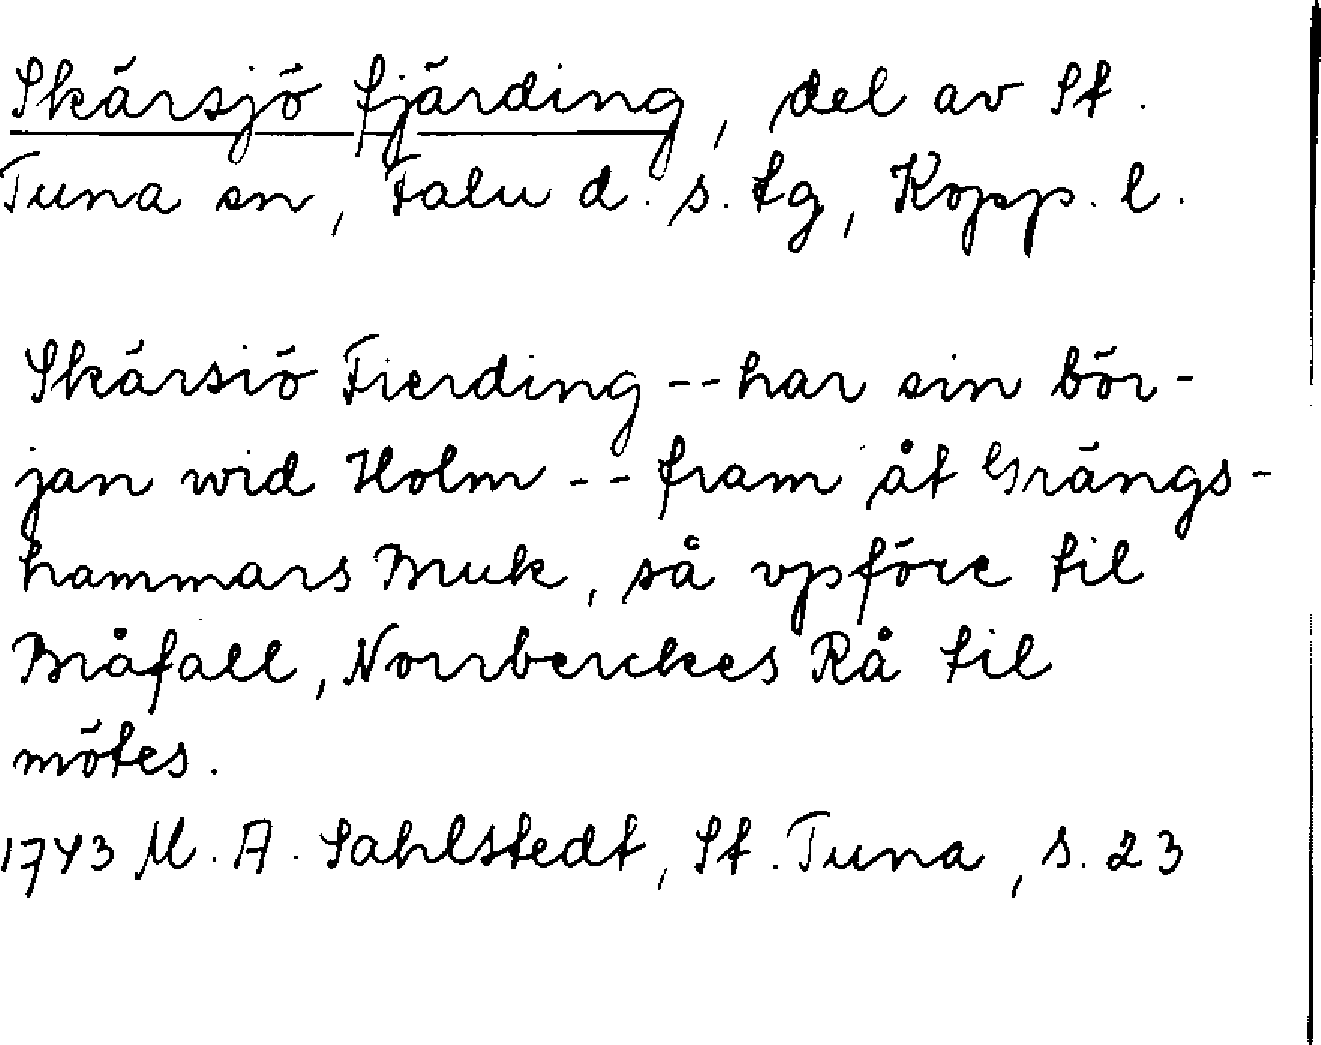 Skärsjö fjärding, del av St.
Tuna sn, Falu d. s. tg, Kopp. l.
Skärsiö Fierding -- har sin bör-
jan wid Holm -- fram åt Grängs-
hammars Bruk, så vpföre til
Bråfall, Norrberckes Rå til
mötes.
1743 M. A. Sahlstedt, St. Tuna, s. 23